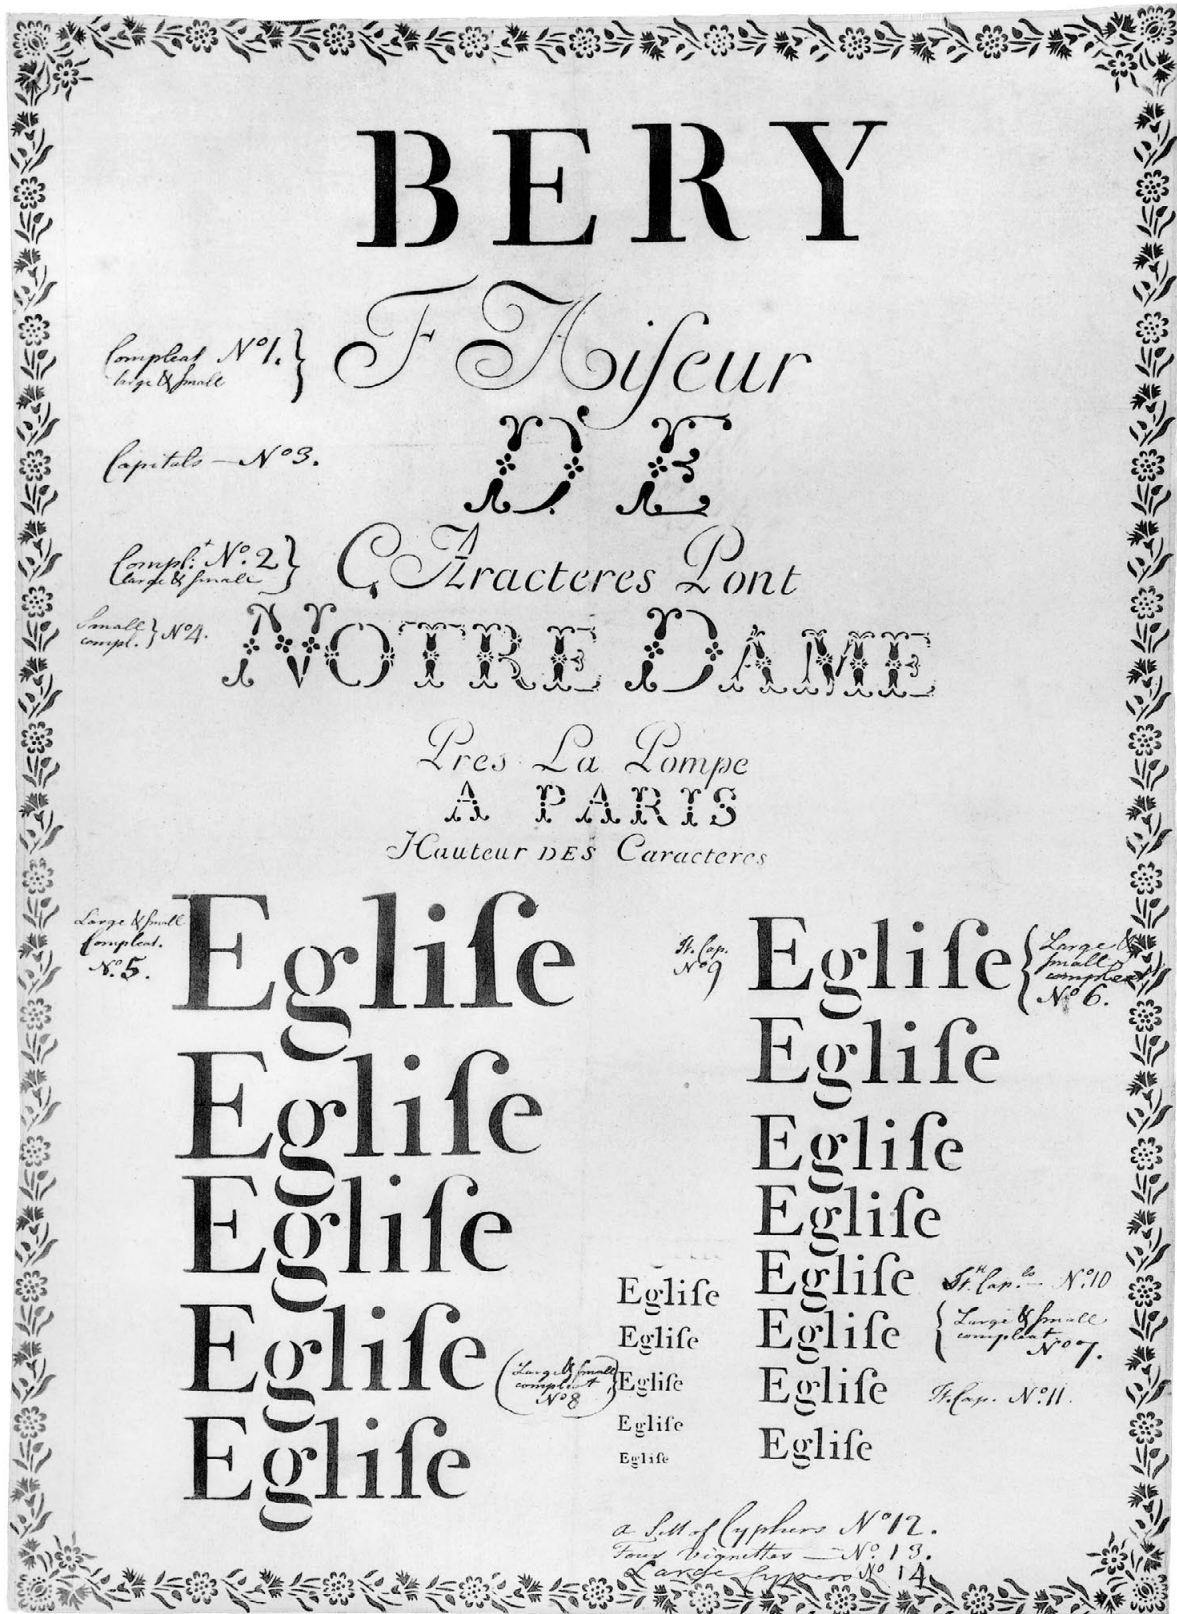 BERY
Compleat No1.
large & small
FAiſeur
Capitals — No3.
DE
Compl.t No. 2
large & small
CAracteres Pont
Small
compl. No4.
NOTRE DAME
Pres La Pompe
A PARIS
Hauteur DES Caracteres
Large & small
Compleat.
No. 5.
Egliſe
Egliſe
Egliſe
Egliſe
Large & small
compleat
No 8
Egliſe
It. Cap.
No 9
Egliſe
Large &
small
compleat
No 6.
Egliſe
Egliſe
Egliſe
Egliſe
It. Cap.ls — No. 10
Egliſe
Large & small
compleat
No 7.
Egliſe
It. Cap. No. 11.
Egliſe
Egliſe
Egliſe
Egliſe
Egliſe
Egliſe
a Sett of Cyphers No 12.
Four Vignettes — No. 13.
Large Cypers No 14.